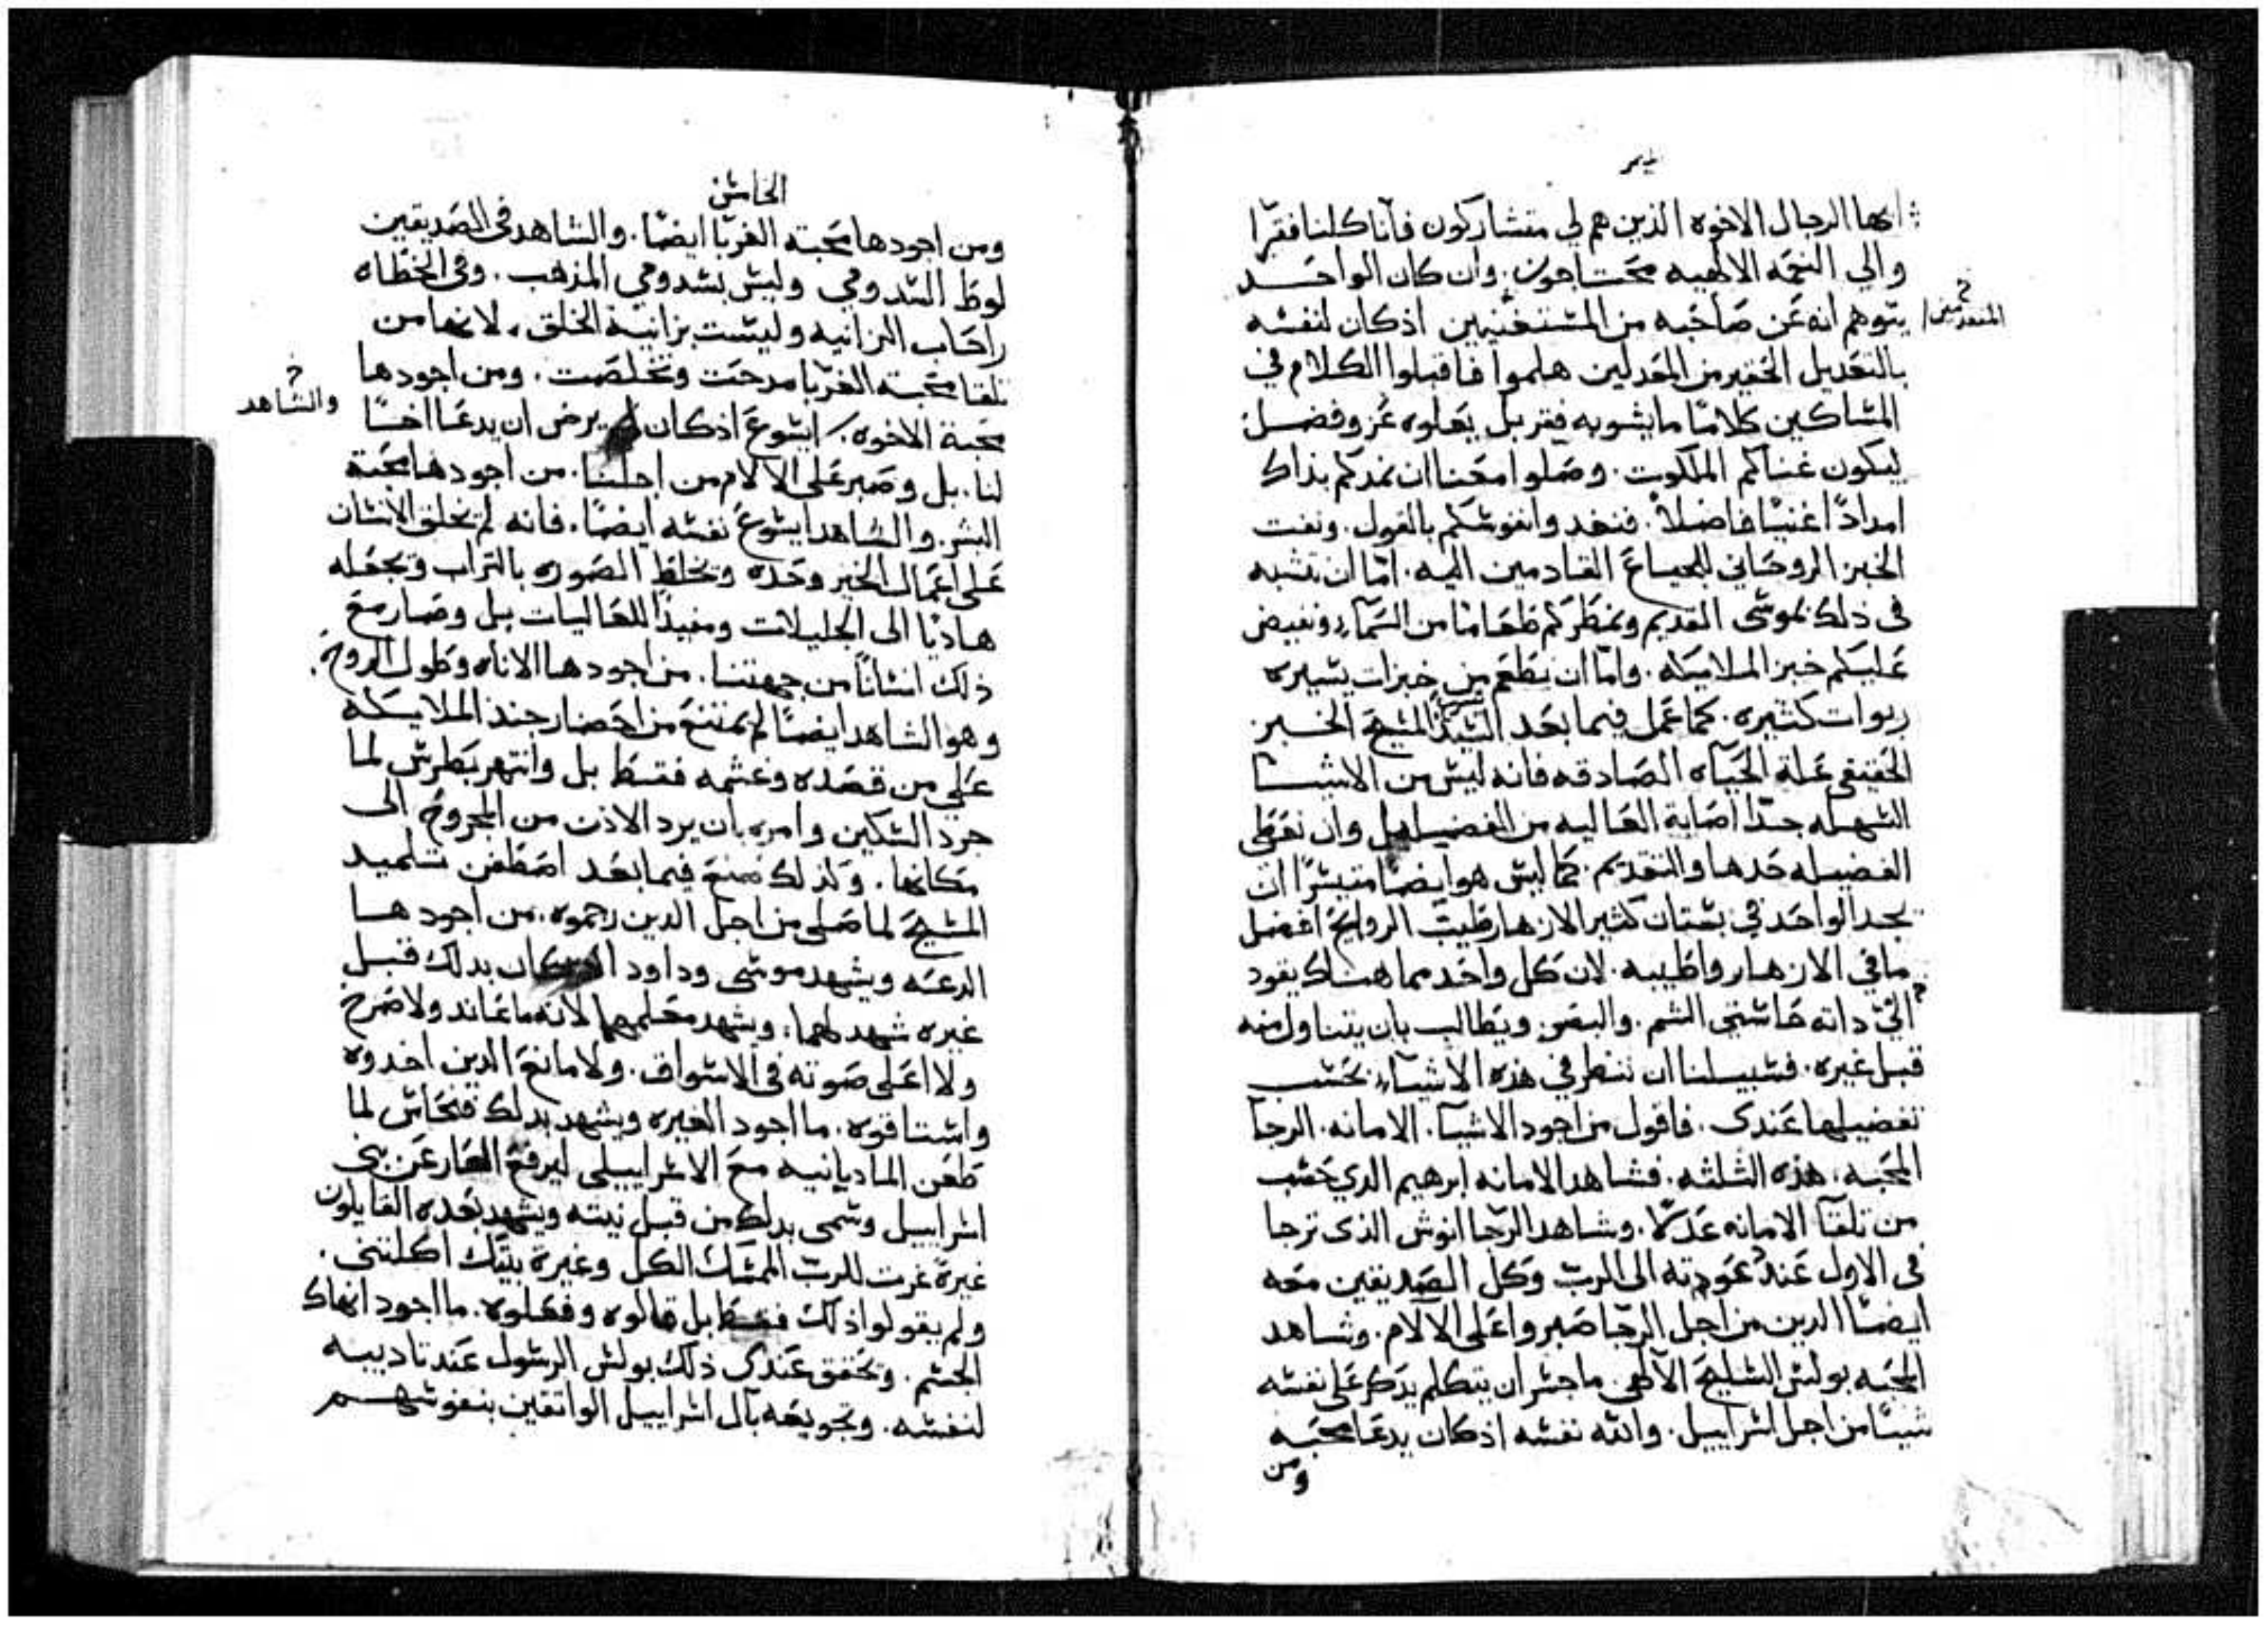 ميمر
ايها الرجال الاخوه الذين هم لي متشاركون فاننا كلنا فقرا
والي النعمه الالهيه محتاجون. وان كان الواحد
يتوهم انه عن صاحبه من المستغنيين اذ كان لنفسه
بالتعديل الحقير من المعدلين هلموا فاقبلوا الكلام في
المساكين كلامًا ما يشوبه فقر بل يعلوه عز وفضل
ليكون غناكم الملكوت. وصلوا معنا ان نمدكم بذاك
امدادًا غنيًا فاضلاً. فنغدوا نفوسكم بالقول. ونفت
الخبز الروحاني للجياع القادمين اليه. امّا ان نتشبه
في ذلك بموسى القديم ونمطركم طعامًا من السماء ونفيض
عليكم خبز الملايكه. وامّا ان نطعم من خبزات يسيره
ربوات كثيره. كما عمل فيما بعد السيد المسيح الخبز
الحقيقي علة الحياه الصادقه فانه ليس من الاشيا
السهله جدًا اصابة العاليه من الفضيله وان نعطي
الفضيله حدها والتقديم. كما ليس هو ايضًا متيسرًا ان
يجد الواحد في بستان كثير الازهار طيب الروايح افضل
ما في الازهار واطيبه. لان كل واحد مما هناك يقود
الي داته حاستي الشم. والبصر. ويطالب بان يتناول منه
قبل غيره. فسبيلنا ان ننظر في هذه الاشياء بحسب
تفضيلها عندي. فاقول من اجود الاشيا. الامانه. الرجا
المحبه. هذه الثلثه. فشاهد الامانه ابرهيم الدي حسب
من تلقا الامانه عدلاً. وشاهد الرجا انوش الذى ترجا
في الاول عند عودته الى الرب وكل الصديقين معه
ايضًا الدين من اجل الرجا صبروا على الالام. وشاهد
المحبه بولس السليح الالهي. ما جسر ان يتكلم يدكر على نفسه
شيئًا من اجل اسراييل. والله نفسه اذ كان يدعا محبه
ومن
المتقدمين
الخامس
ومن اجودها محبة الغربا ايضًا. والشاهد في الصديقين
لوط السدومي وليس بسدومي المذهب. وفي الخطاه
راحاب الزانيه وليست بزانية الخلق. لانها من
تلقا محبته الغربا مدحت وتخلصت. ومن اجودها
محبة الاخوه. ايسوع اذ كان لم يرض ان يدعا اخًا
والشاهد
لنا. بل وصبر على الالام من اجلنا. من اجودها محبة
البشر. والشاهد ايسوع نفسه ايضًا. فانه لم يخلق الانسان
على اعمال الخير وحده ويخلط الصوره بالتراب ويجعله
هاديًا الى الجليلات ومفيدًا للعاليات بل وصار مع
ذلك انسانًا من جهتنا. من اجودها الاناه وطول الروح.
وهو الشاهد ايضًا لم يمتنع من احضار جند الملايكة
على من قصده وغشمه فقط بل وانتهر بطرس لما
جرد السكين وامره بان يرد الاذن من المجروح الى
مكانها. ولذلك صنع فيما بعد اصطفن تلميد
المسيح لما صلى من اجل الدين رجموه. من اجودها
الدعه ويشهد موسى وداود بدلك قبل
غيره شهد لهما. ويشهد معلمهما لانه ما عاند ولا صرخ
ولا اعلى صوته في الاسواق. ولا مانع الدين اخدوه
واستاقوه. ما اجود الغيره ويشهد بدلك فنحاس لما
طعن الماديانيه مع الاسراييلي ليرفع العار عن بني
اسراييل وسمى بدلك من قبل نيته ويشهد بعده القايلون
غيرةً غرت للرب الممسك الكل وغيرة بيتك اكلتني.
ولم يقولوا ذلك فقط بل قالوه وفعلوه. ما اجود انهاك
الجسم. ويحقق عندك ذلك بولس الرسول عند تاديبه
لنفسه. وتجويعه بآل اسراييل الواثقين بنفوسهم